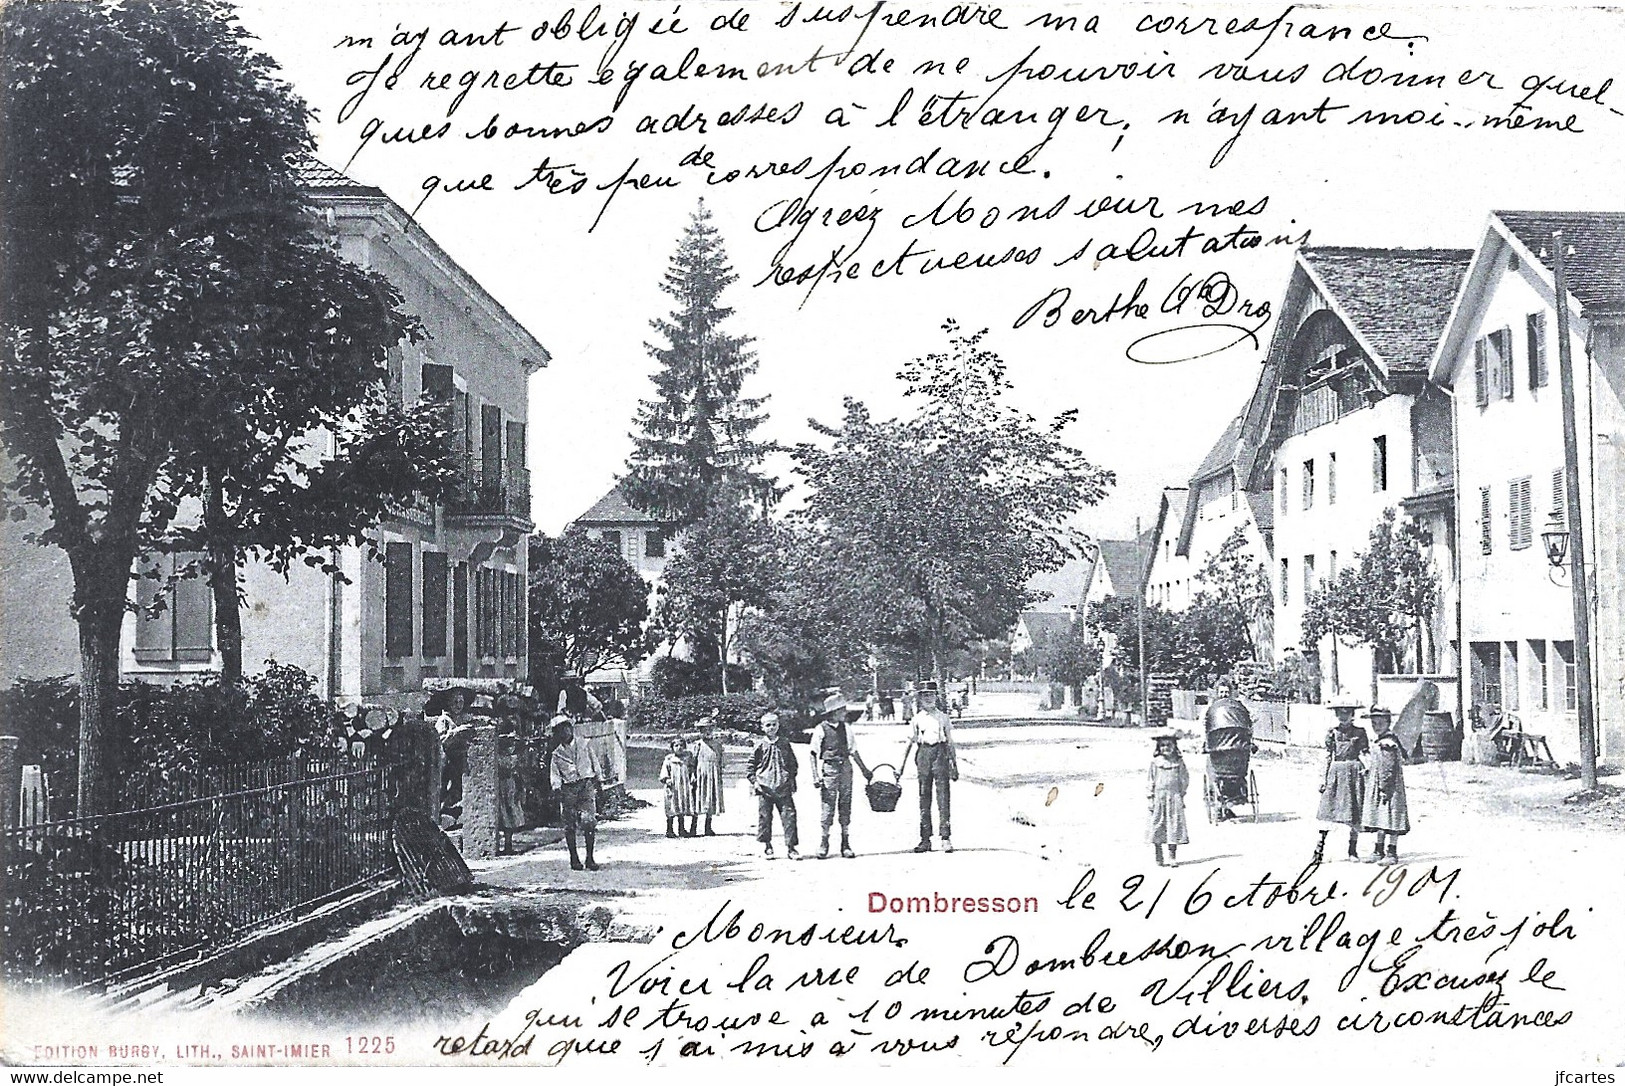 m'ayant obligée de suspendre ma correspance.
Je regrette également de ne pouvoir vous donner quel-
ques bonnes adresses à l'étranger, n'ayant moi-même
que très peu de correspondance.
Agréez Monsieur mes
respectueuses salutations
Berthe Droz
Dombresson le 21 Octobre. 1901.
Monsieur.
Voici la vue de Dombresson village très joli
qui se trouve à 10 minutes de Villiers. Excusez le
retard que j'ai mis à vous répondre, diverses circonstances
EDITION BURGY, LITH., SAINT-IMIER 1225
delcampe.net
jfcartes